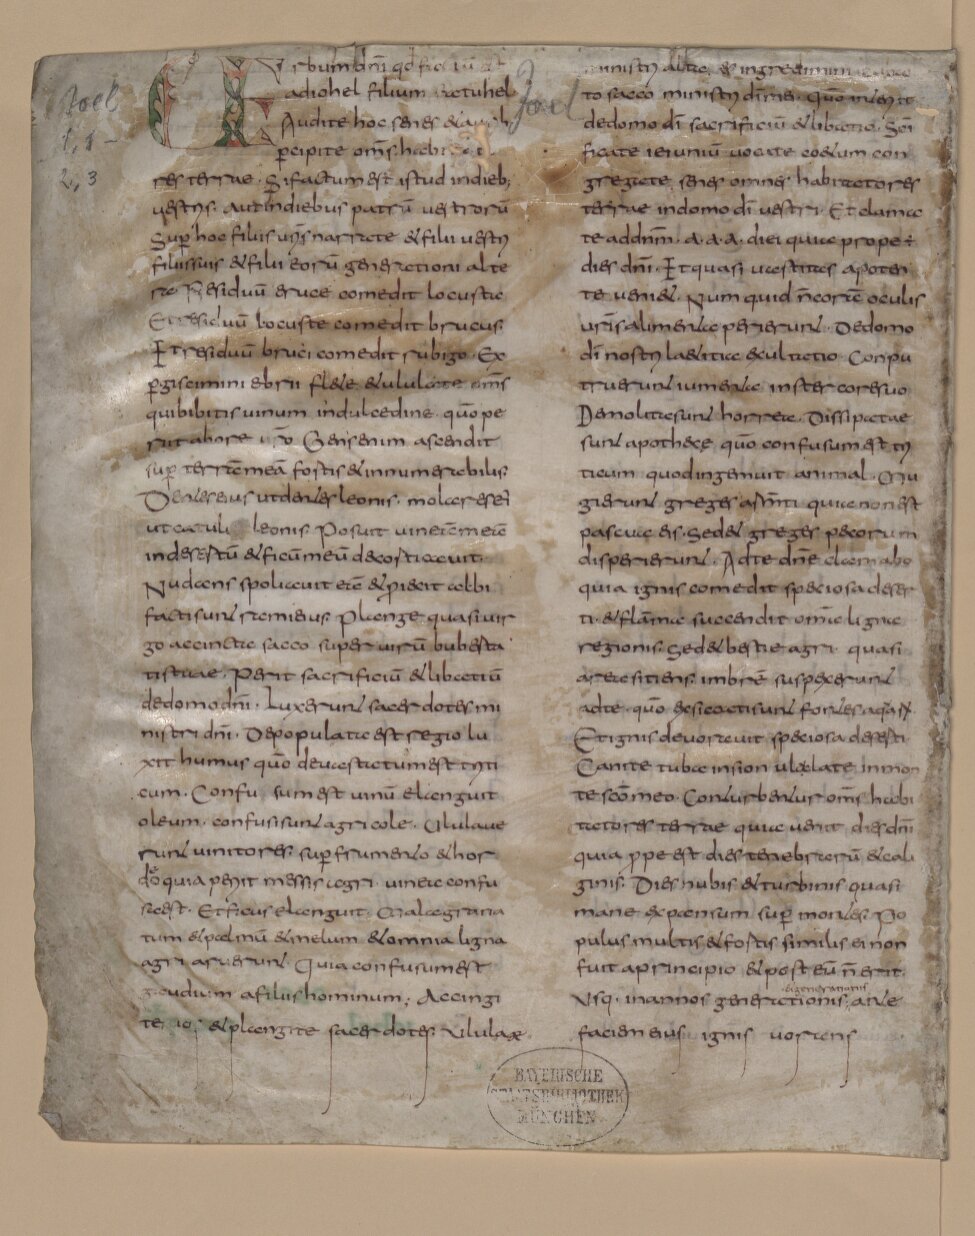 Joel
1,1-
2,3
Joel
UErbum dñi qd̄ factū est
adiohel filium fatuhel
Audite hoc senes & aurib;
p̱cipite om̄s habitato
res terrae · Si factum est istud indieb;
uestris · aut indiebus patrū uestrorū
Sup̱ hoc filiis ur̄is narrate & filii uestri
filiis suis & filii eorū generationi alte
re · Residuū eruce comedit locusta
Et residuū locuste comedit brucus ·
Et residuū bruci comedit rubigo · Ex
p̱giscimini ebrii flete & ululate om̄s
qui bibitis uinum indulcedine · quō pe
riit abore ur̄o Gens enim ascendit
sup̱ terrā meā fortis & innumerabilis ·
Dentes eius ut dentes leonis · molares ei
ut catuli leonis Posuit uineā meā
indesertū & ficū meū decorticauit ·
Nudans spoliauit eā & p̱iecit albi
facti sunt rami eius · Plange quasi uir
go accincta sacco super uirū pubertа
tis tuae · Periit sacrificiū & libatiū
dedomo dñi · Luxerunt sacerdotes mi
nistri dñi · Depopulata est regio lu
xit humus quō deuastatum est triti
cum · Confusum est uinū elanguit
oleum · confusi sunt agricole · Ululaue
runt uinitores · sup̱ frumento & hor
deo quia periit messis agri · uinea confu
sa est · Et ficus elanguit · Malagrana
tum & palmū & malum & omnia ligna
agri aruerunt · Quia confusum est
gaudium a filiis hominum ; Accingi
te uos & plangite sacerdotes · Ululate
ministri altaris · & ingredimini cubate
to sacco ministri di mei · Quō interiit
dedomo di sacrificiū & libatio · Sci
ficate ieiuniū uocate coetum con
gregate senes omnes habitatores
terrae in domo di uestri · Et clama
te ad dnm̄ · a · a · a · diei quia prope ÷
dies dñi · Et quasi uastitas apoten
te ueniet · Numquid ñ coram oculis
ur̄is alimenta perierunt · Dedomo
di nostri laetitia & exultatio · Conpu
truerunt iumenta in stercore suo
Demolita sunt horrea · Dissipatae
sunt apothece quō confusum est tri
ticum · quod ingemuit animal · Mu
gierunt greges armti quia non est
pascua eis · Sed & greges pecorum
disperierunt · Ad te dñe clamabo
quia ignis comedit speciosa deser
ti · & flāma succendit om̄ia ligna
regionis · Sed & bestie agri · quasi
area sitiens imbrē suspexerunt
ad te · quō exsiccati sunt fontes aquarꝝ ·
Et ignis deuorauit speciosa deserti
Canite tuba in sion ululate in mon
te scō meo · Conturbentur om̄s habi
tatores terrae quia uenit dies dñi
quia ꝓpe est dies tenebrarū & cali
ginis · Dies nubis & turbinis quasi
mane expansum sup̱ montes Po
pulus multus & fortis similis ei non
fuit a principio & post eū ñ erit ·
& generationis
Usq· in annos generationis · ante
faciem eius ignis uorans
BAYERISCHE
STAATSBIBLIOTHEK
MÜNCHEN